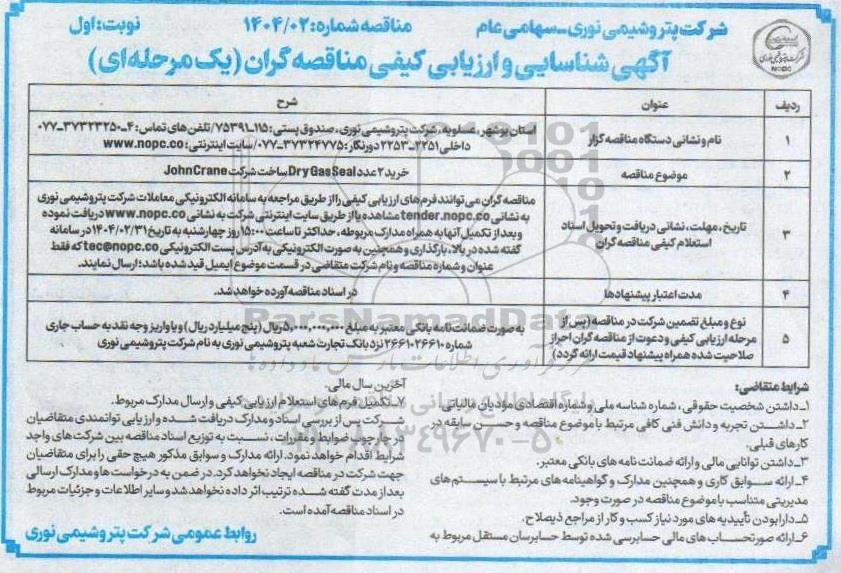 شرکت پتروشیمی نوری-سهامی عام
مناقصه شماره: ۱۴۰۴/۰۲
نوبت: اول
NOPC
آگهی شناسایی و ارزیابی کیفی مناقصه گران (یک مرحله ای)
ردیف
عنوان
شرح
۱
نام و نشانی دستگاه مناقصه گزار
استان بوشهر، عسلویه، شرکت پتروشیمی نوری، صندوق پستی: ۱۱۵-۷۵۳۹۱/تلفن های تماس: ۴-۳۷۳۲۳۲۵۰-۰۷۷
داخلی ۲۲۵۱-۲۲۵۳ دورنگار: ۳۷۳۲۴۷۷۵-۰۷۷/سایت اینترنتی: www.nopc.co
۲
موضوع مناقصه
خرید ۲ عدد Dry Gas Seal ساخت شرکت John Crane
۳
تاریخ، مهلت، نشانی دریافت و تحویل اسناد
استعلام کیفی مناقصه گران
مناقصه گران می توانند فرم های ارزیابی کیفی را از طریق مراجعه به سامانه الکترونیکی معاملات شرکت پتروشیمی نوری
به نشانی tender.nopc.co مشاهده یا از طریق سایت اینترنتی شرکت به نشانی www.nopc.co دریافت نموده
و بعد از تکمیل آنها به همراه مدارک مربوطه، حداکثر تا ساعت ۱۵:۰۰ روز چهارشنبه به تاریخ ۱۴۰۴/۰۲/۳۱ در سامانه
گفته شده در بالا، بارگذاری و همچنین به صورت الکترونیکی به آدرس پست الکترونیکی tec@nopc.co که فقط
عنوان و شماره مناقصه و نام شرکت متقاضی در قسمت موضوع ایمیل قید شده باشد؛ ارسال نمایند.
۴
مدت اعتبار پیشنهادها
در اسناد مناقصه آورده خواهد شد.
۵
نوع و مبلغ تضمین شرکت در مناقصه (پس از
مرحله ارزیابی کیفی و دعوت از مناقصه گران احراز
صلاحیت شده همراه پیشنهاد قیمت ارائه گردد)
به صورت ضمانت نامه بانکی معتبر به مبلغ ۵,۰۰۰,۰۰۰,۰۰۰ ریال (پنج میلیارد ریال) و یا واریز وجه نقد به حساب جاری
شماره ۲۶۶۱۰۲۶۶۱۰ نزد بانک تجارت شعبه پتروشیمی نوری به نام شرکت پتروشیمی نوری
شرایط متقاضی:
۱-داشتن شخصیت حقوقی، شماره شناسه ملی و شماره اقتصادی مؤدیان مالیاتی.
۲-داشتن تجربه و دانش فنی کافی مرتبط با موضوع مناقصه و حسن سابقه در
کارهای قبلی.
۳-داشتن توانایی مالی و ارائه ضمانت نامه های بانکی معتبر.
۴-ارائه سوابق کاری و همچنین مدارک و گواهینامه های مرتبط با سیستم های
مدیریتی متناسب با موضوع مناقصه در صورت وجود.
۵-دارا بودن تأییدیه های مورد نیاز کسب و کار از مراجع ذیصلاح.
۶-ارائه صورتحساب های مالی حسابرسی شده توسط حسابرسان مستقل مربوط به
آخرین سال مالی.
۷-تکمیل فرم های استعلام ارزیابی کیفی و ارسال مدارک مربوط.
شرکت پس از بررسی اسناد و مدارک دریافت شده و ارزیابی توانمندی متقاضیان
در چارچوب ضوابط و مقررات، نسبت به توزیع اسناد مناقصه بین شرکت های واجد
شرایط اقدام خواهد نمود. ارائه مدارک و سوابق مذکور هیچ حقی را برای متقاضیان
جهت شرکت در مناقصه ایجاد نخواهد کرد. در ضمن به درخواست ها و مدارک ارسالی
بعد از مدت گفته شده ترتیب اثر داده نخواهد شد و سایر اطلاعات و جزئیات مربوط
در اسناد مناقصه آمده است.
روابط عمومی شرکت پتروشیمی نوری
ParsNamadData